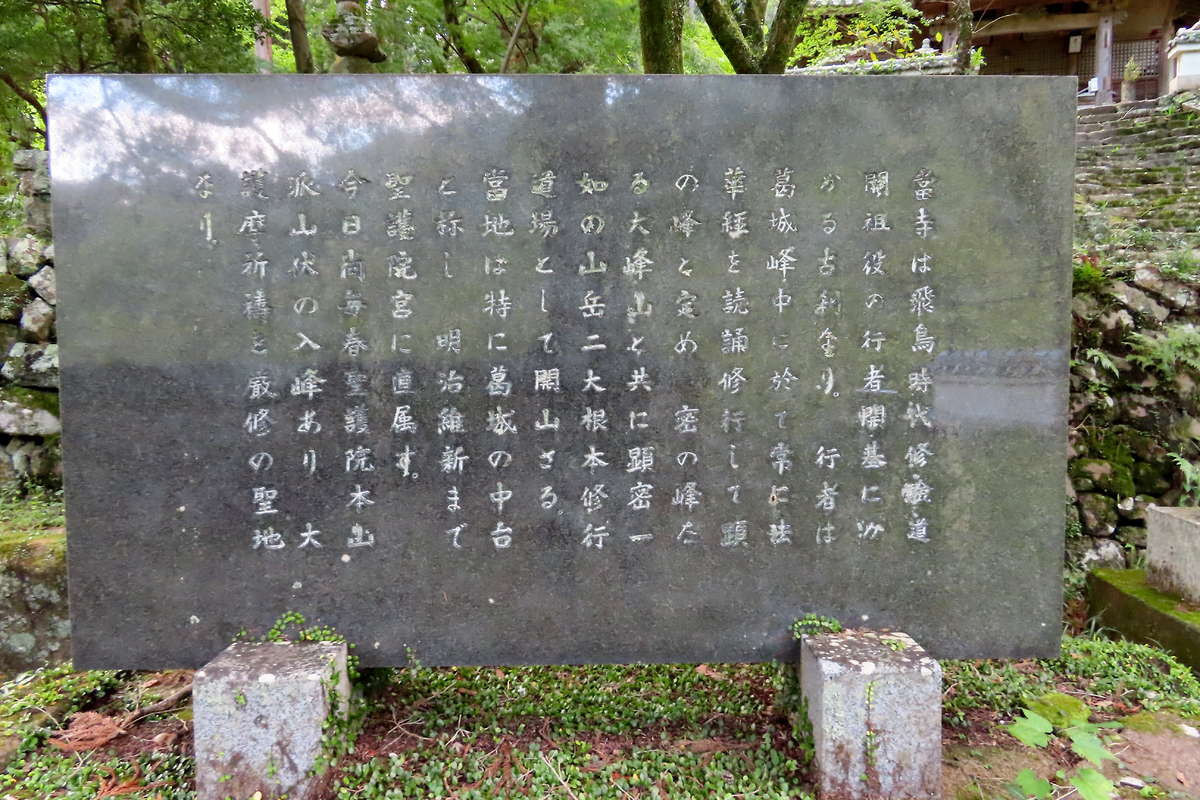 當寺は飛鳥時代修験道
開祖役の行者開基にかゝ
かる古刹なり。行者は
葛城峰中に於て常に法
華経を読誦修行して顕
の峰と定め 密の峰た
る大峰山と共に顕密一
如の山岳二大根本修行
道場として開山さる。
當地は特に葛城の中台
と称し 明治維新まで
聖護院宮に直属す。
今日尚毎春聖護院本山
派山伏の入峰あり 大
護摩祈祷を厳修の聖地
なり。